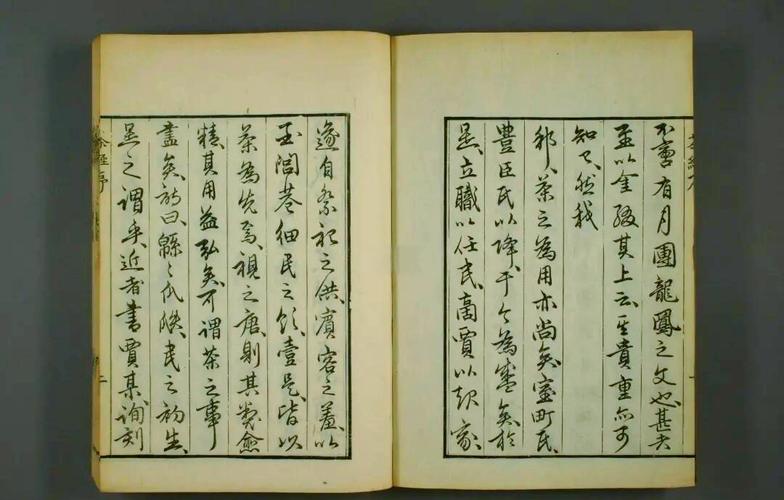 不啻有月團龍鳳之文也甚者
至以金綴其上云其貴重亦可
知已然我
邦茶之為用亦尚矣室町氏
豐臣氏以降于今為盛矣於
是立職以任民商賈以起家
遂自祭祀之供賓客之羞以
至閭巷細民之飲壹是皆以
茶為先焉視之唐則其愈
精其用益弘矣可謂茶之事
盡矣詩曰緜〻瓜瓞民之初生
是之謂乎近者書賈某詢刻
茶經序
二